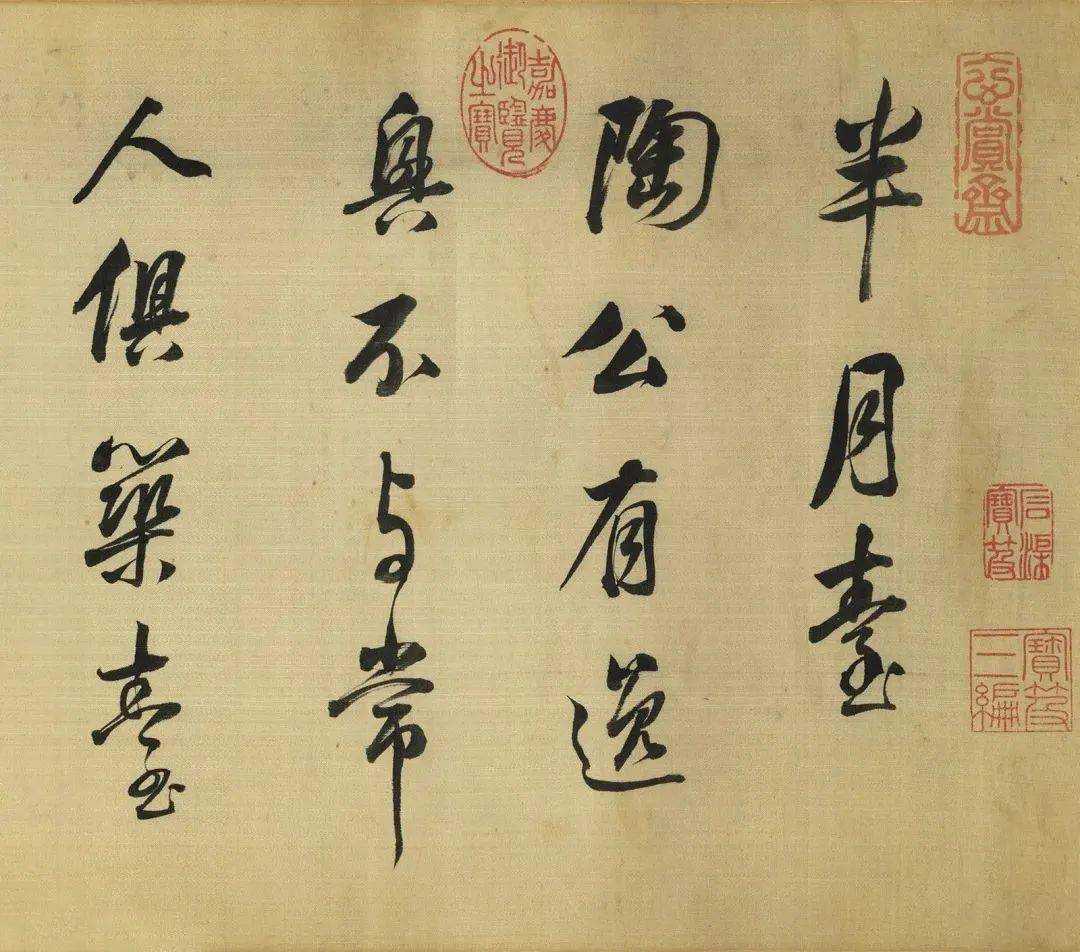 玄賞齋
石渠寶笈
寶笈三編
半月臺
陶公有逸
嘉慶御覽之寶
興不与常
人俱築臺